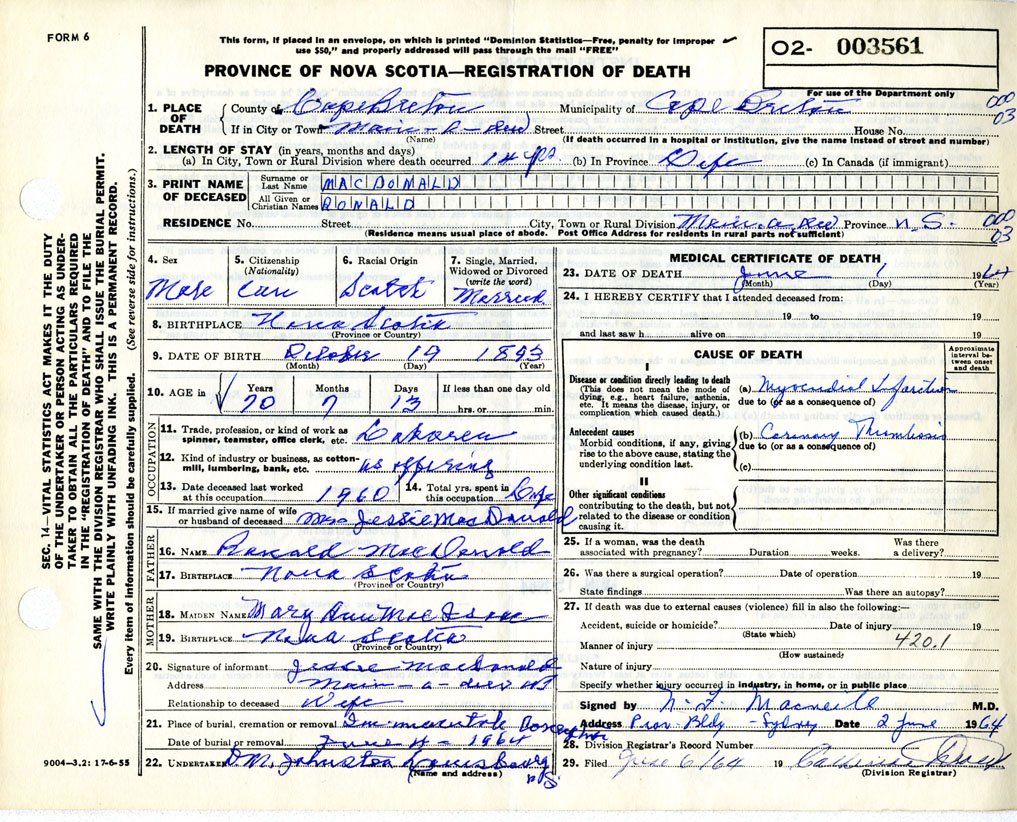 FORM 6
This form, if placed in an envelope, on which is printed "Dominion Statistics—Free, penalty for improper
use $50," and properly addressed will pass through the mail "FREE"
PROVINCE OF NOVA SCOTIA—REGISTRATION OF DEATH
02- 003561
For use of the Department only
000
03
1. PLACE OF DEATH
County of Cape Breton Municipality of Cape Breton
If in City or Town Main-a-Dieu Street House No.
(Name) (If death occurred in a hospital or institution, give the name instead of street and number)
2. LENGTH OF STAY (in years, months and days)
(a) In City, Town or Rural Division where death occurred 14 yrs. (b) In Province Life (c) In Canada (if immigrant)
3. PRINT NAME OF DECEASED
Surname or Last Name MACDONALD
All Given or Christian Names RONALD
RESIDENCE No. Street City, Town or Rural Division Main-a-Dieu Province N.S.
(Residence means usual place of abode. Post Office Address for residents in rural parts not sufficient)
000
03
4. Sex Male
5. Citizenship (Nationality) Can
6. Racial Origin Scotch
7. Single, Married, Widowed or Divorced (write the word) Married
8. BIRTHPLACE Nova Scotia
(Province or Country)
9. DATE OF BIRTH October 19 1893
(Month) (Day) (Year)
10. AGE in Years 70 Months 7 Days 13 If less than one day old hrs. or min.
OCCUPATION
11. Trade, profession, or kind of work as spinner, teamster, office clerk, etc. Laborer
12. Kind of industry or business, as cotton-mill, lumbering, bank, etc. as offering
13. Date deceased last worked at this occupation 1960
14. Total yrs. spent in this occupation Life
15. If married give name of wife or husband of deceased Mrs Jessie MacDonald
FATHER
16. NAME Ronald MacDonald
17. BIRTHPLACE Nova Scotia
(Province or Country)
MOTHER
18. MAIDEN NAME Mary Ann MacIsaac
19. BIRTHPLACE Nova Scotia
(Province or Country)
20. Signature of informant Jessie MacDonald
Address Main-a-dieu NS
Relationship to deceased Wife
21. Place of burial, cremation or removal Immaculate Conception
Date of burial or removal June 4 - 1964
22. UNDERTAKER D.M. Johnston Louisbourg N.S.
(Name and address)
9004-3.2: 17-6-55
MEDICAL CERTIFICATE OF DEATH
23. DATE OF DEATH June 1 1964
(Month) (Day) (Year)
24. I HEREBY CERTIFY that I attended deceased from:
19 to 19
and last saw h alive on 19
CAUSE OF DEATH
Approximate interval between onset and death
I
Disease or condition directly leading to death
(This does not mean the mode of dying, e.g., heart failure, asthenia, etc. It means the disease, injury, or complication which caused death.)
(a) Myocardial Infarction
due to (or as a consequence of)
Antecedent causes
Morbid conditions, if any, giving rise to the above cause, stating the underlying condition last.
(b) Coronary Thrombosis
due to (or as a consequence of)
(c)
II
Other significant conditions
contributing to the death, but not related to the disease or condition causing it.
25. If a woman, was the death associated with pregnancy? Duration weeks. Was there a delivery?
26. Was there a surgical operation? Date of operation 19
State findings Was there an autopsy?
27. If death was due to external causes (violence) fill in also the following:—
Accident, suicide or homicide? Date of injury 19
(State which)
Manner of injury 420.1
(How sustained)
Nature of injury
Specify whether injury occurred in industry, in home, or in public place
Signed by M.D.
Address Prov. Bldg - Sydney Date 2 June 1964
28. Division Registrar's Record Number
29. Filed June 6/64 19
(Division Registrar)
SEC. 14—VITAL STATISTICS ACT MAKES IT THE DUTY
OF THE UNDERTAKER OR PERSON ACTING AS UNDER-
TAKER TO OBTAIN ALL THE PARTICULARS REQUIRED
IN THE "REGISTRATION OF DEATH" AND TO FILE THE
SAME WITH THE DIVISION REGISTRAR WHO SHALL ISSUE THE BURIAL PERMIT.
WRITE PLAINLY WITH UNFADING INK. THIS IS A PERMANENT RECORD.
Every item of information should be carefully supplied. (See reverse side for instructions.)